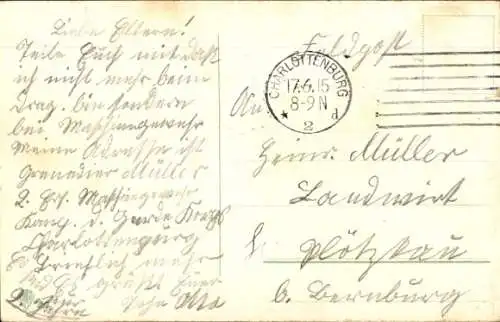 Liebe Eltern!
Teile Euch mit daß
ich nicht mehr beim
Drag. bin sondern
bei Maschinengewehr
Meine Adresse ist
Grenadier Müller
2. Ers. Maschinengewehr
Komp. d. Garde Korps
Charlottenburg
mehr
grüßt Euer
Sohn Otto
Feldpost
CHARLOTTENBURG
17.6.15
8-9 N
* 2 d
An
Heinr. Müller
Landwirt
Plötzkau
b. Bernburg